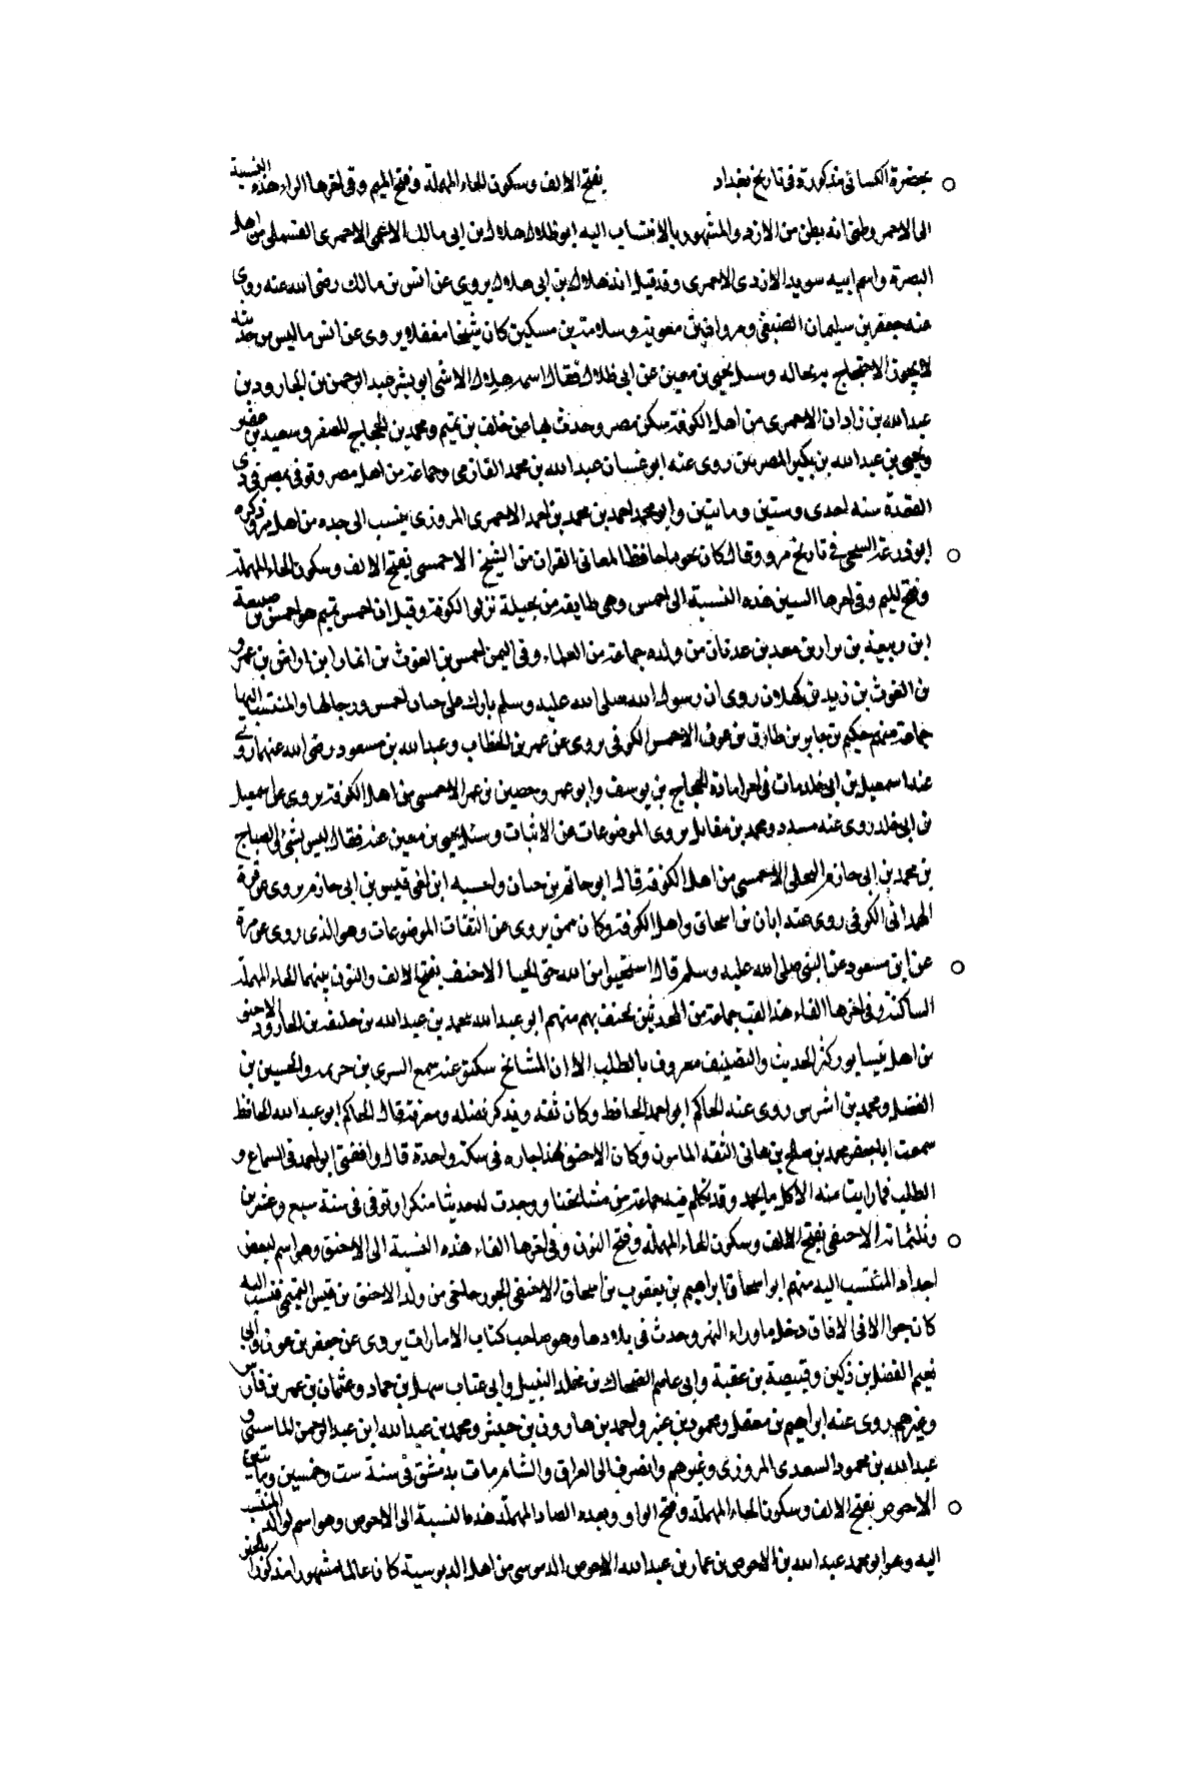 بحضرة الكسائى مذكورة فى تاريخ بغداد بفتح الالف وسكون الحاء المهملة وفتح الميم وفى اخرها الراء هذه النسبة
الى الاحمر وظنى انه بطن من الازد والمشهور بالانتساب اليه ابو ظلال هلال ابن ابى مالك الاعمى الاحمرى القسملى من اهل
البصرة واسم ابيه سويد الازدى الاحمرى وقد قيل انه هلال بن ابى هلال يروى عن انس بن مالك رضى الله عنه روى
عنه جعفر بن سليمان الضبعى ومروان بن معوية وسلام بن مسكين كان شيخا مغفلا يروى عن انس ما ليس من حديثه
لا يجوز الاحتجاج به بحاله وسئل يحيى بن معين عن ابى ظلال فقال اسمه هلال لا شى ابو بشر عبد الرحمن بن الجارود بن
عبد الله بن زاذان الاحمرى من اهل الكوفة سكن مصر وحدث بها عن خلف بن تميم ومحمد بن الحجاج المصفر وسعيد بن عفير
ويحيى بن عبد الله بن بكير المصريين روى عنه ابو غسان عبد الله بن محمد القازمى وجماعة من اهل مصر وتوفى بمصر فى ذى
القعدة سنه احدى وستين وماتين وابو محمد احمد بن محمد بن احمد الاحمرى المروزى ينسب الى جده من اهل مرو ذكره
ابو زرعة السنجى فى تاريخ مرو وقال كان نحويا حافظا لمعانى القران من الشيخ الاحمسى بفتح الالف وسكون الحاء المهملة
وفتح الميم وفى اخرها السين هذه النسبة الى احمس وهى طايفة من بجيلة نزلوا الكوفة وقيل ان احمس تميم هو احمس بن ضبيعة
ابن ربيعة بن نزار بن معد بن عدنان من ولده جماعة من العلماء وفى اليمن احمس بن الغوث بن انمار ابن اراش بن عمرو
بن الغوث بن زيد بن كهلان روى ان رسول الله صلى الله عليه وسلم بارك على خيل احمس ورجالها والمنتسب اليها
جماعة منهم حكيم بن جابر بن طارق بن عوف الاحمسى الكوفى يروى عن عمر بن الخطاب وعبد الله بن مسعود رضى الله عنهما روى
عنه اسمعيل بن ابى خالد مات فى اخر امارة الحجاج بن يوسف وابو عمر وحصين بن عمر الاحمسى من اهل الكوفة يروى عن اسمعيل
بن ابى خالد روى عنه مسدد ومحمد بن مقاتل يروى الموضوعات عن الاثبات وسئل يحيى بن معين عنه فقال ليس بشئ والصباح
بن محمد بن ابى حازم البجلى الاحمسى من اهل الكوفة قال ابو حاتم بن حبان واحسبه ابن اخى قيس بن ابى حازم يروى عن مرة
الهمدانى الكوفى روى عنه ابان بن اسحاق واهل الكوفة وكان ممن يروى عن الثقات الموضوعات وهو الذى روى عن مرة
عن ابن مسعود عن النبى صلى الله عليه وسلم قال استحيوا من الله حق الحيا الاحنف بفتح الالف والنون بينهما الحاء المهملة
الساكنة وفى اخرها الفاء هذا لقب جماعة من المحدثين لحنف بهم منهم ابو عبد الله محمد بن عبد الله بن خليفة بن الجارود الاحنف
من اهل نيسابور كثير الحديث والتصنيف معروف بالطلب الا ان المشائخ سكتوا عنه سمع السرى بن خزيمه والحسين بن
الفضل ومحمد بن اشرس روى عنه الحاكم ابو احمد الحافظ وكان ثقه ويذكر فضله ومعرفته قال الحاكم ابو عبد الله الحافظ
سمعت ابا جعفر محمد بن صالح بن هانى الثقه المامون وكان الاحنف هذا جاره فى سكة واحدة قال وافقنى ابو احمد فى السماع و
الطلب فما رايت منه الا كل ما يحمد وقد تكلم فيه جماعة من مشايخنا ووجدت له حديثا منكرا وتوفى فى سنة سبع وعشرين
وثلثماية الاحنفى بفتح الالف وسكون الحاء المهملة وفتح النون وفى اخرها الفاء هذه النسبة الى الاحنف وهو اسم لبعض
اجداد المنتسب اليه منهم ابو اسحاق ابراهيم بن يعقوب بن اسحاق الاحنفى الجوزجانى من ولد الاحنف بن قيس التميمى فنسب اليه
كان جوالا فى الافاق دخل ما وراء النهر وحدث فى بلادها وهو صاحب كتاب الامارات يروى عن جعفر بن عون وابى
نعيم الفضل بن ذكين وقبيصة بن عقبة وابى عاصم الضحاك بن مخلد النبيل وابى عتاب سهل بن حماد وعثمان بن عمر بن فارس
وغيرهم روى عنه ابراهيم بن معقل ومحمود بن عنبر واحمد بن هارون بن ومحمد بن عبد الله ابن عبد الرحمن و
عبد الله بن محمود السعدى المروزى وغيرهم وانصرف الى العراق والشام ومات بدمشق فى سنة ست وخمسين ومايتين
الاحوصى بفتح الالف وسكون الحاء المهملة وفتح الواو وبعده الصاد المهملة هذه النسبة الى الاحوص وهو اسم لوالد المنتسب
اليه وهو ابو محمد عبد الله بن الاحوص بن عمار بن عبد الله الاحوصى الدبوسى من اهل الدبوسية كان عالما مشهورا مذكورا